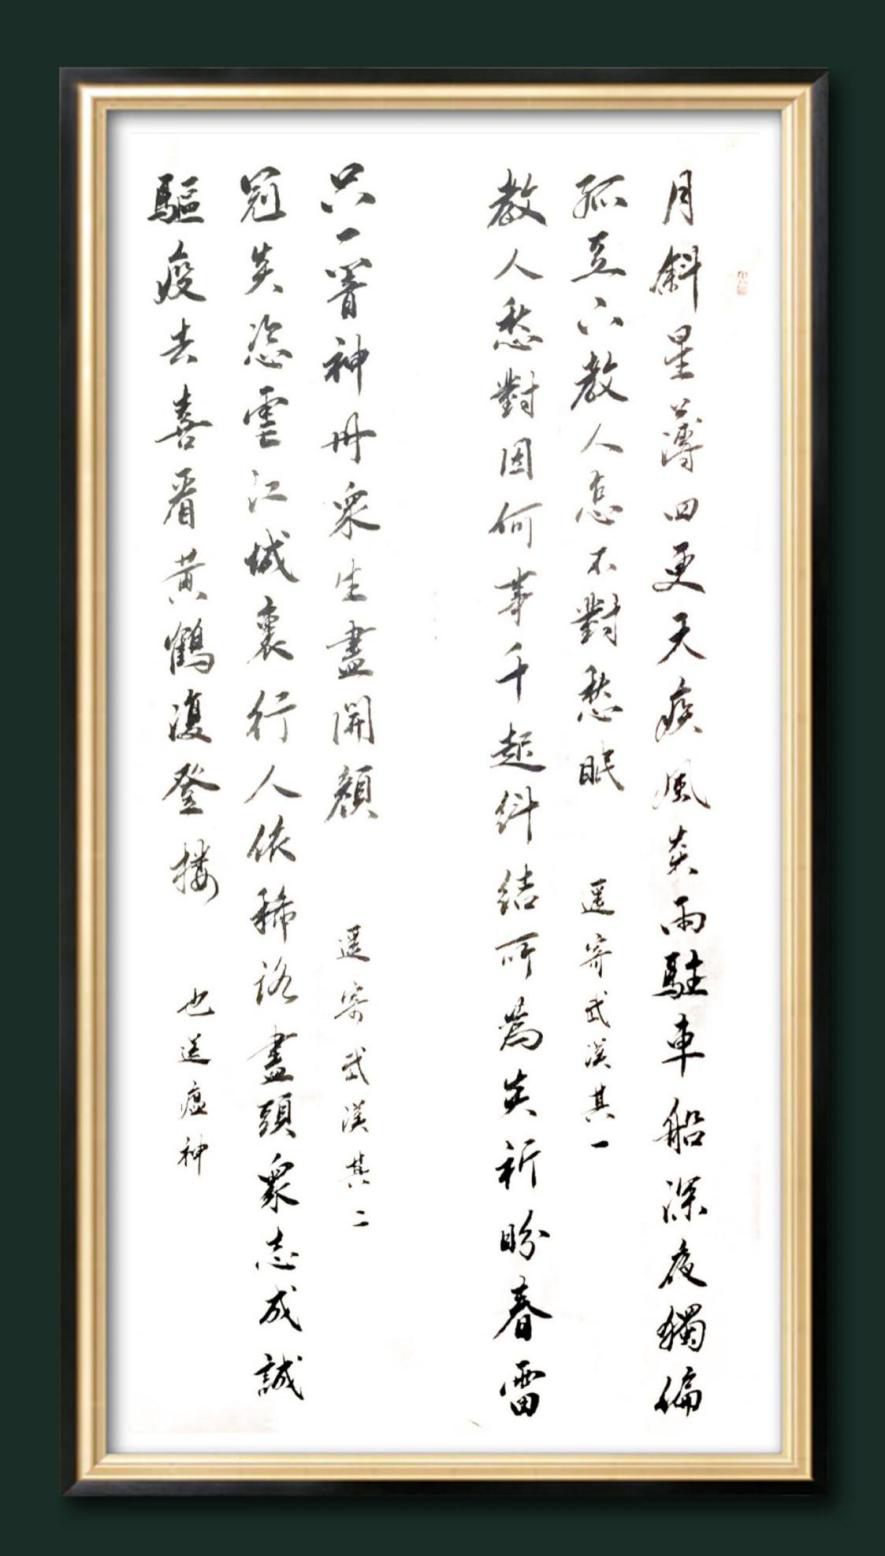 月斜星薄四更天疾風雨駐車船深夜獨偏
孤立教人怎不對愁眠 遥寄武漢其一
教人愁對因何事千起糾結所為炎祈盼春雷
只一響神州眾生盡開顏 遥寄武漢其二
冠炎恣虐江城裏行人依稀路盡頭眾志成誠
驅疫去喜看黃鶴復登樓 也送瘟神